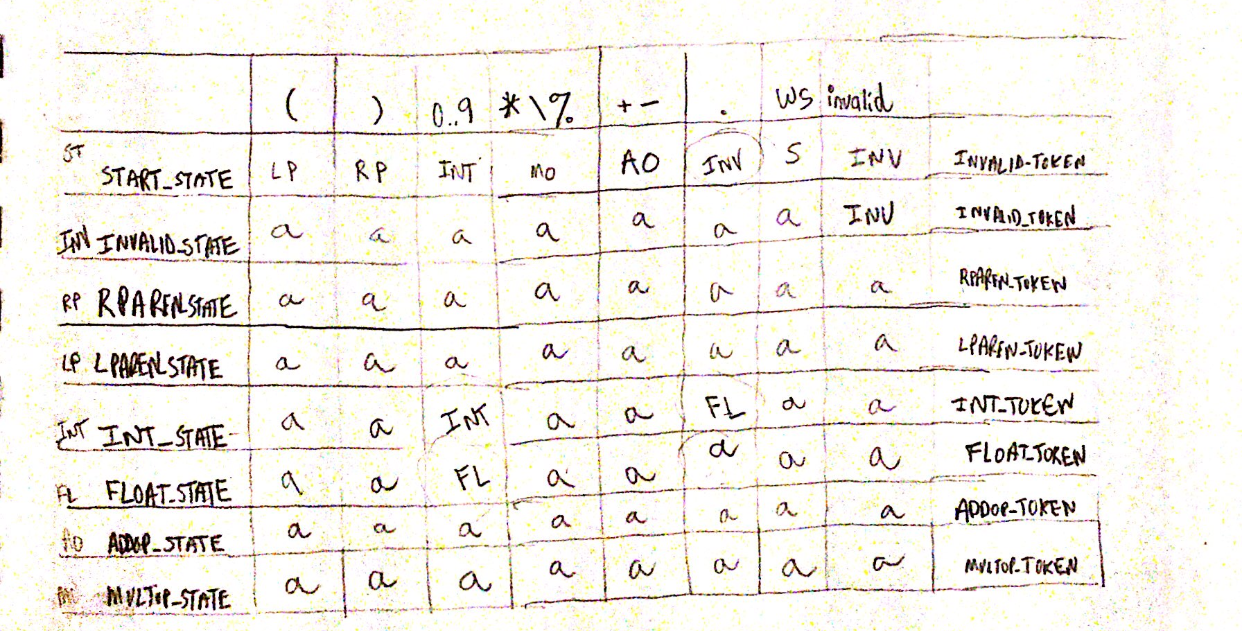 ( ) 0..9 *\% + - . WS invalid
ST START_STATE LP RP INT MO AO INV S INV INVALID-TOKEN
INV INVALID_STATE a a a a a a a INV INVALID_TOKEN
RP RPAREN_STATE a a a a a a a a RPAREN_TOKEN
LP LPAREN_STATE a a a a a a a a LPAREN_TOKEN
INT INT_STATE a a INT a a FL a a INT_TOKEN
FL FLOAT_STATE a a FL a a a a a FLOAT_TOKEN
AO ADDOP_STATE a a a a a a a a ADDOP_TOKEN
MULTOP_STATE a a a a a a a a MULTOP_TOKEN